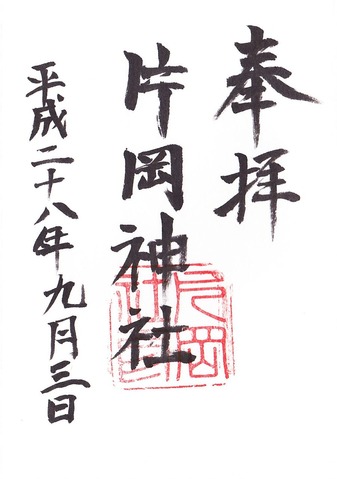 奉拝
片岡神社
平成二十八年九月三日